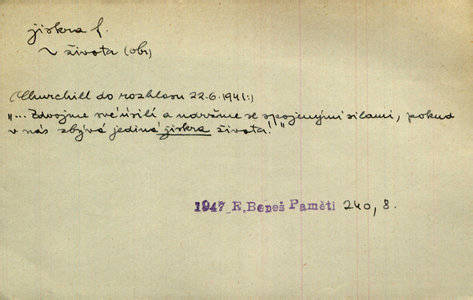 jiskra f.
~ života (obr)
(Churchill do rozhlasu 22.6.1941:)
„... Zdvojme své úsilí a udržme se spojenými silami, pokud
v nás zbývá jediná jiskra života."
1947 E. Beneš Paměti 240, 8.